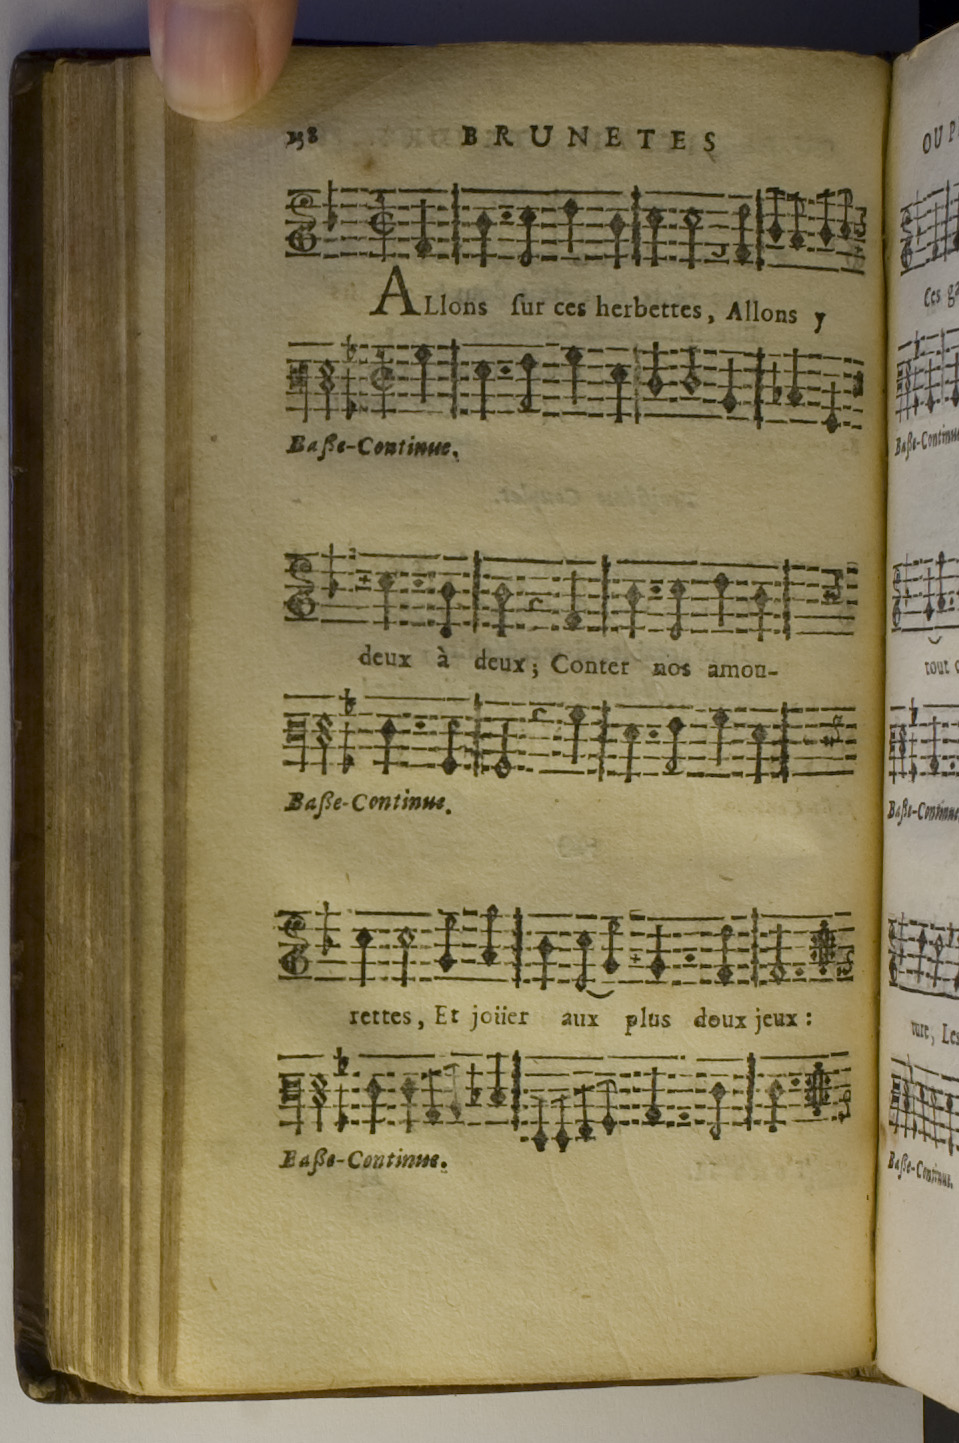 238 BRUNETES
ALlons ſur ces herbettes, Allons y
Baſſe-Continue.
deux à deux; Conter nos amou-
Baſſe-Continue.
rettes, Et joüer aux plus doux jeux:
Baſſe-Continue.
OU P
Ces ga
Baſſe-Continue
tout
Baſſe-Continue.
ture, Les
Baſſe-Continue.